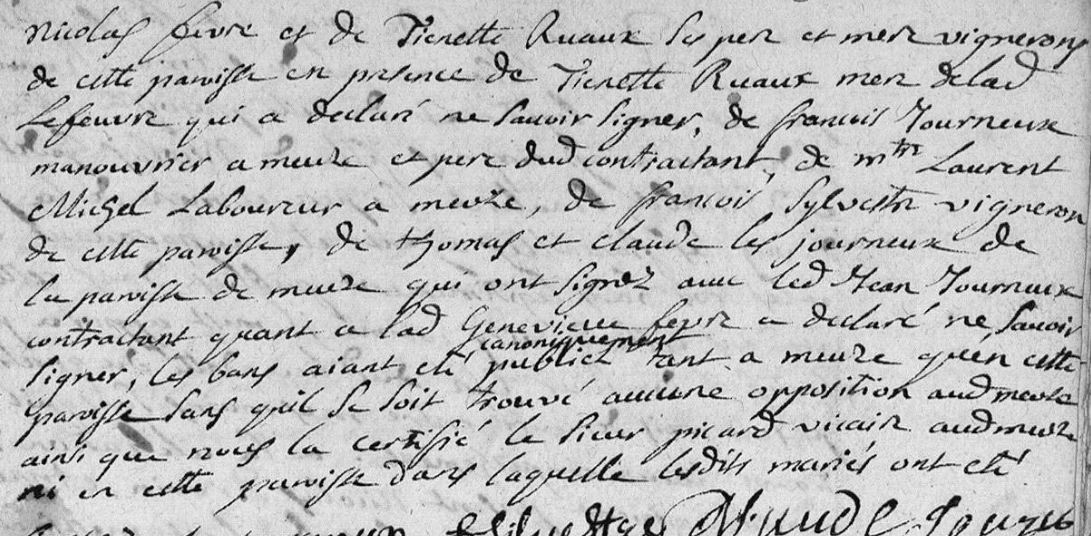 Nicolas fevre et de Tienette Ruaux ses pere et mere vignerons
de cette paroisse en presence de Tienette Ruaux mere de lad
Lefeuvre qui a declaré ne savoir signer, de francois Journeux
manouvrier a meuze et pere dud contractant, de mtre Laurent
Michel Laboureur a meuze, de francois Sylvestre vigneron
de cette paroisse, de thomas et claude les journeux de
la paroisse de meuze qui ont signez avec led Jean Journeux
contractant quant a lad Genevieve fevre a declaré ne savoir
canoniquement
signer, les bans aiant eté publiez tant a meuze qu'en cette
paroisse sans qu'il se soit trouvé aucune opposition aud meuze
ainsi que nous la certifié le sieur picard vicaire aud meuze
ni en cette paroisse dans laquelle lesdits mariés ont eté